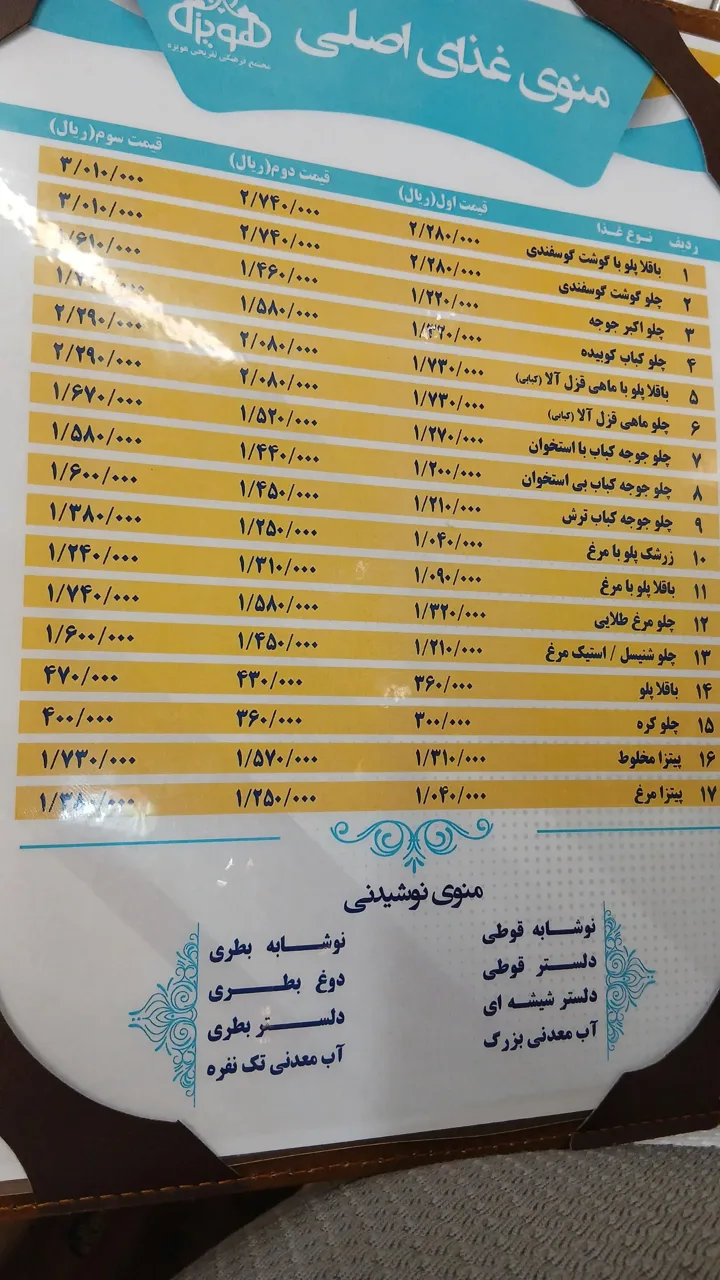 هویزه
مجتمع فرهنگی تفریحی هویزه
منوی غذای اصلی
ردیف نوع غذا قیمت اول(ریال) قیمت دوم(ریال) قیمت سوم(ریال)
۱ باقلا پلو با گوشت گوسفندی ۲/۲۸۰/۰۰۰ ۲/۷۴۰/۰۰۰ ۳/۰۱۰/۰۰۰
۲ چلو گوشت گوسفندی ۲/۲۸۰/۰۰۰ ۲/۷۴۰/۰۰۰ ۳/۰۱۰/۰۰۰
۳ چلو اکبر جوجه ۱/۲۲۰/۰۰۰ ۱/۴۶۰/۰۰۰ ۱/۶۱۰/۰۰۰
۴ چلو کباب کوبیده ۱/۳۲۰/۰۰۰ ۱/۵۸۰/۰۰۰
۵ باقلا پلو با ماهی قزل آلا (کبابی) ۱/۷۳۰/۰۰۰ ۲/۰۸۰/۰۰۰ ۲/۲۹۰/۰۰۰
۶ چلو ماهی قزل آلا (کبابی) ۱/۷۳۰/۰۰۰ ۲/۰۸۰/۰۰۰ ۲/۲۹۰/۰۰۰
۷ چلو جوجه کباب با استخوان ۱/۲۷۰/۰۰۰ ۱/۵۲۰/۰۰۰ ۱/۶۷۰/۰۰۰
۸ چلو جوجه کباب بی استخوان ۱/۲۰۰/۰۰۰ ۱/۴۴۰/۰۰۰ ۱/۵۸۰/۰۰۰
۹ چلو جوجه کباب ترش ۱/۲۱۰/۰۰۰ ۱/۴۵۰/۰۰۰ ۱/۶۰۰/۰۰۰
۱۰ زرشک پلو با مرغ ۱/۰۴۰/۰۰۰ ۱/۲۵۰/۰۰۰ ۱/۳۸۰/۰۰۰
۱۱ باقلا پلو با مرغ ۱/۰۹۰/۰۰۰ ۱/۳۱۰/۰۰۰ ۱/۲۴۰/۰۰۰
۱۲ چلو مرغ طلایی ۱/۳۲۰/۰۰۰ ۱/۵۸۰/۰۰۰ ۱/۷۴۰/۰۰۰
۱۳ چلو شنیسل / استیک مرغ ۱/۲۱۰/۰۰۰ ۱/۴۵۰/۰۰۰ ۱/۶۰۰/۰۰۰
۱۴ باقلا پلو ۳۶۰/۰۰۰ ۴۳۰/۰۰۰ ۴۷۰/۰۰۰
۱۵ چلو کره ۳۰۰/۰۰۰ ۳۶۰/۰۰۰ ۴۰۰/۰۰۰
۱۶ پیتزا مخلوط ۱/۳۱۰/۰۰۰ ۱/۵۷۰/۰۰۰ ۱/۷۳۰/۰۰۰
۱۷ پیتزا مرغ ۱/۰۴۰/۰۰۰ ۱/۲۵۰/۰۰۰ ۱/۳۸۰/۰۰۰
منوی نوشیدنی
نوشابه قوطی
دلستر قوطی
دلستر شیشه ای
آب معدنی بزرگ
نوشابه بطری
دوغ بطری
دلستر بطری
آب معدنی تک نفره